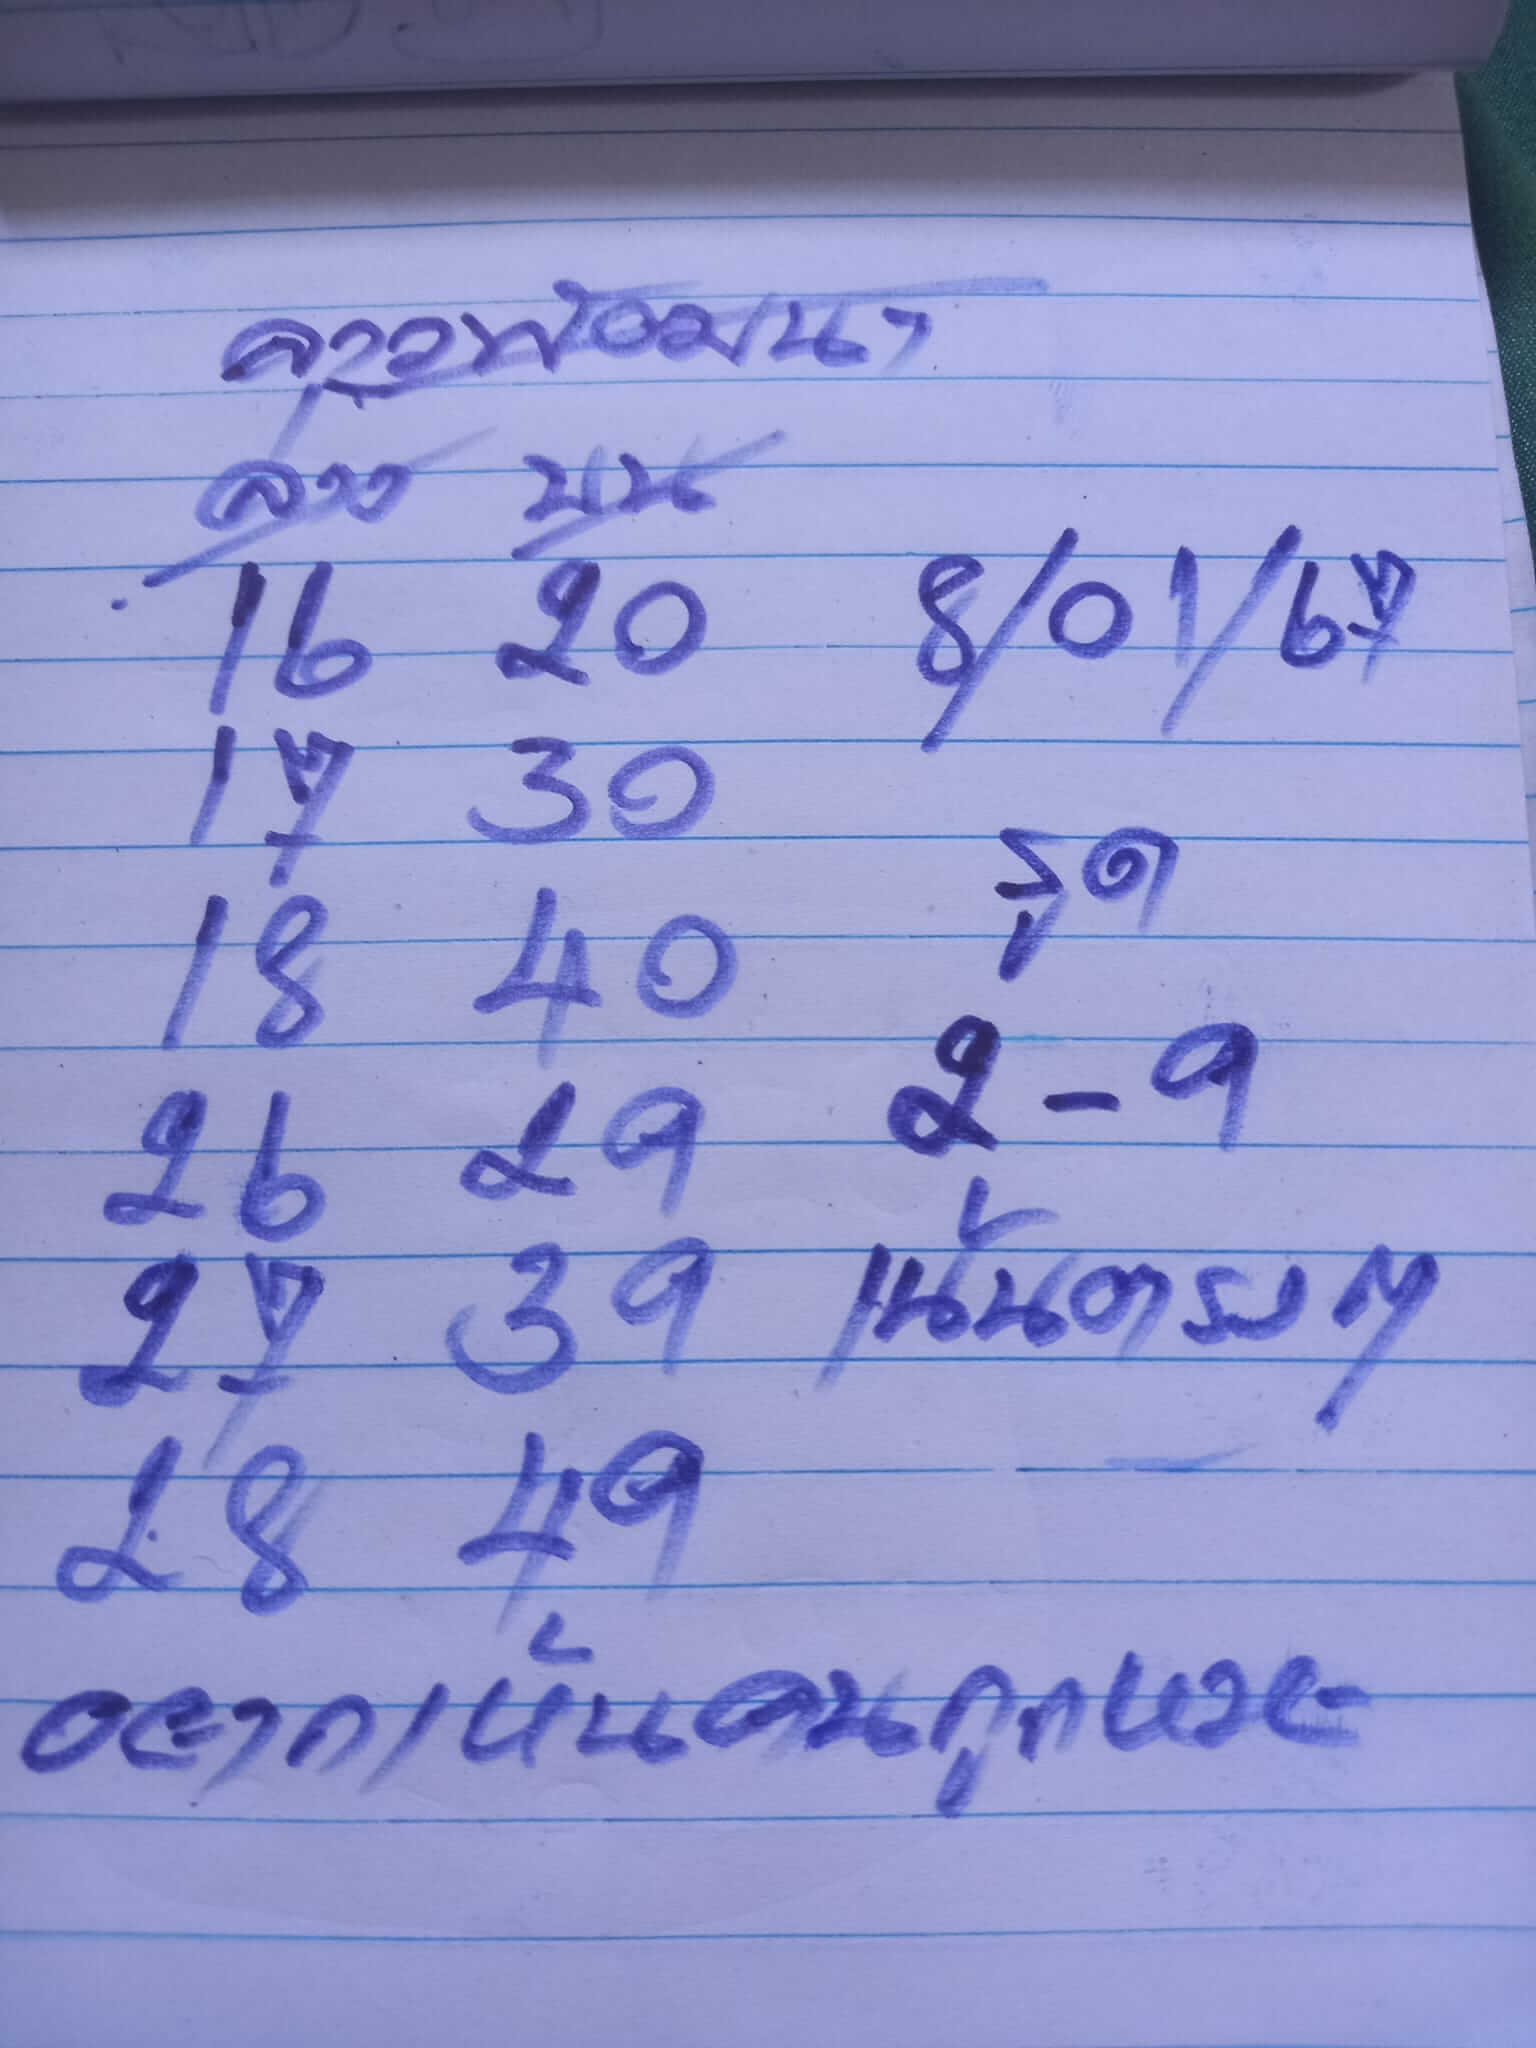 ลาวพ้อมนา
ล่าง บน
16 20 8/01/67
17 30
18 40 รูด
26 29 2-9
27 39 เน้นตรงๆ
28 49
อยากเห็นคนถูกหวย